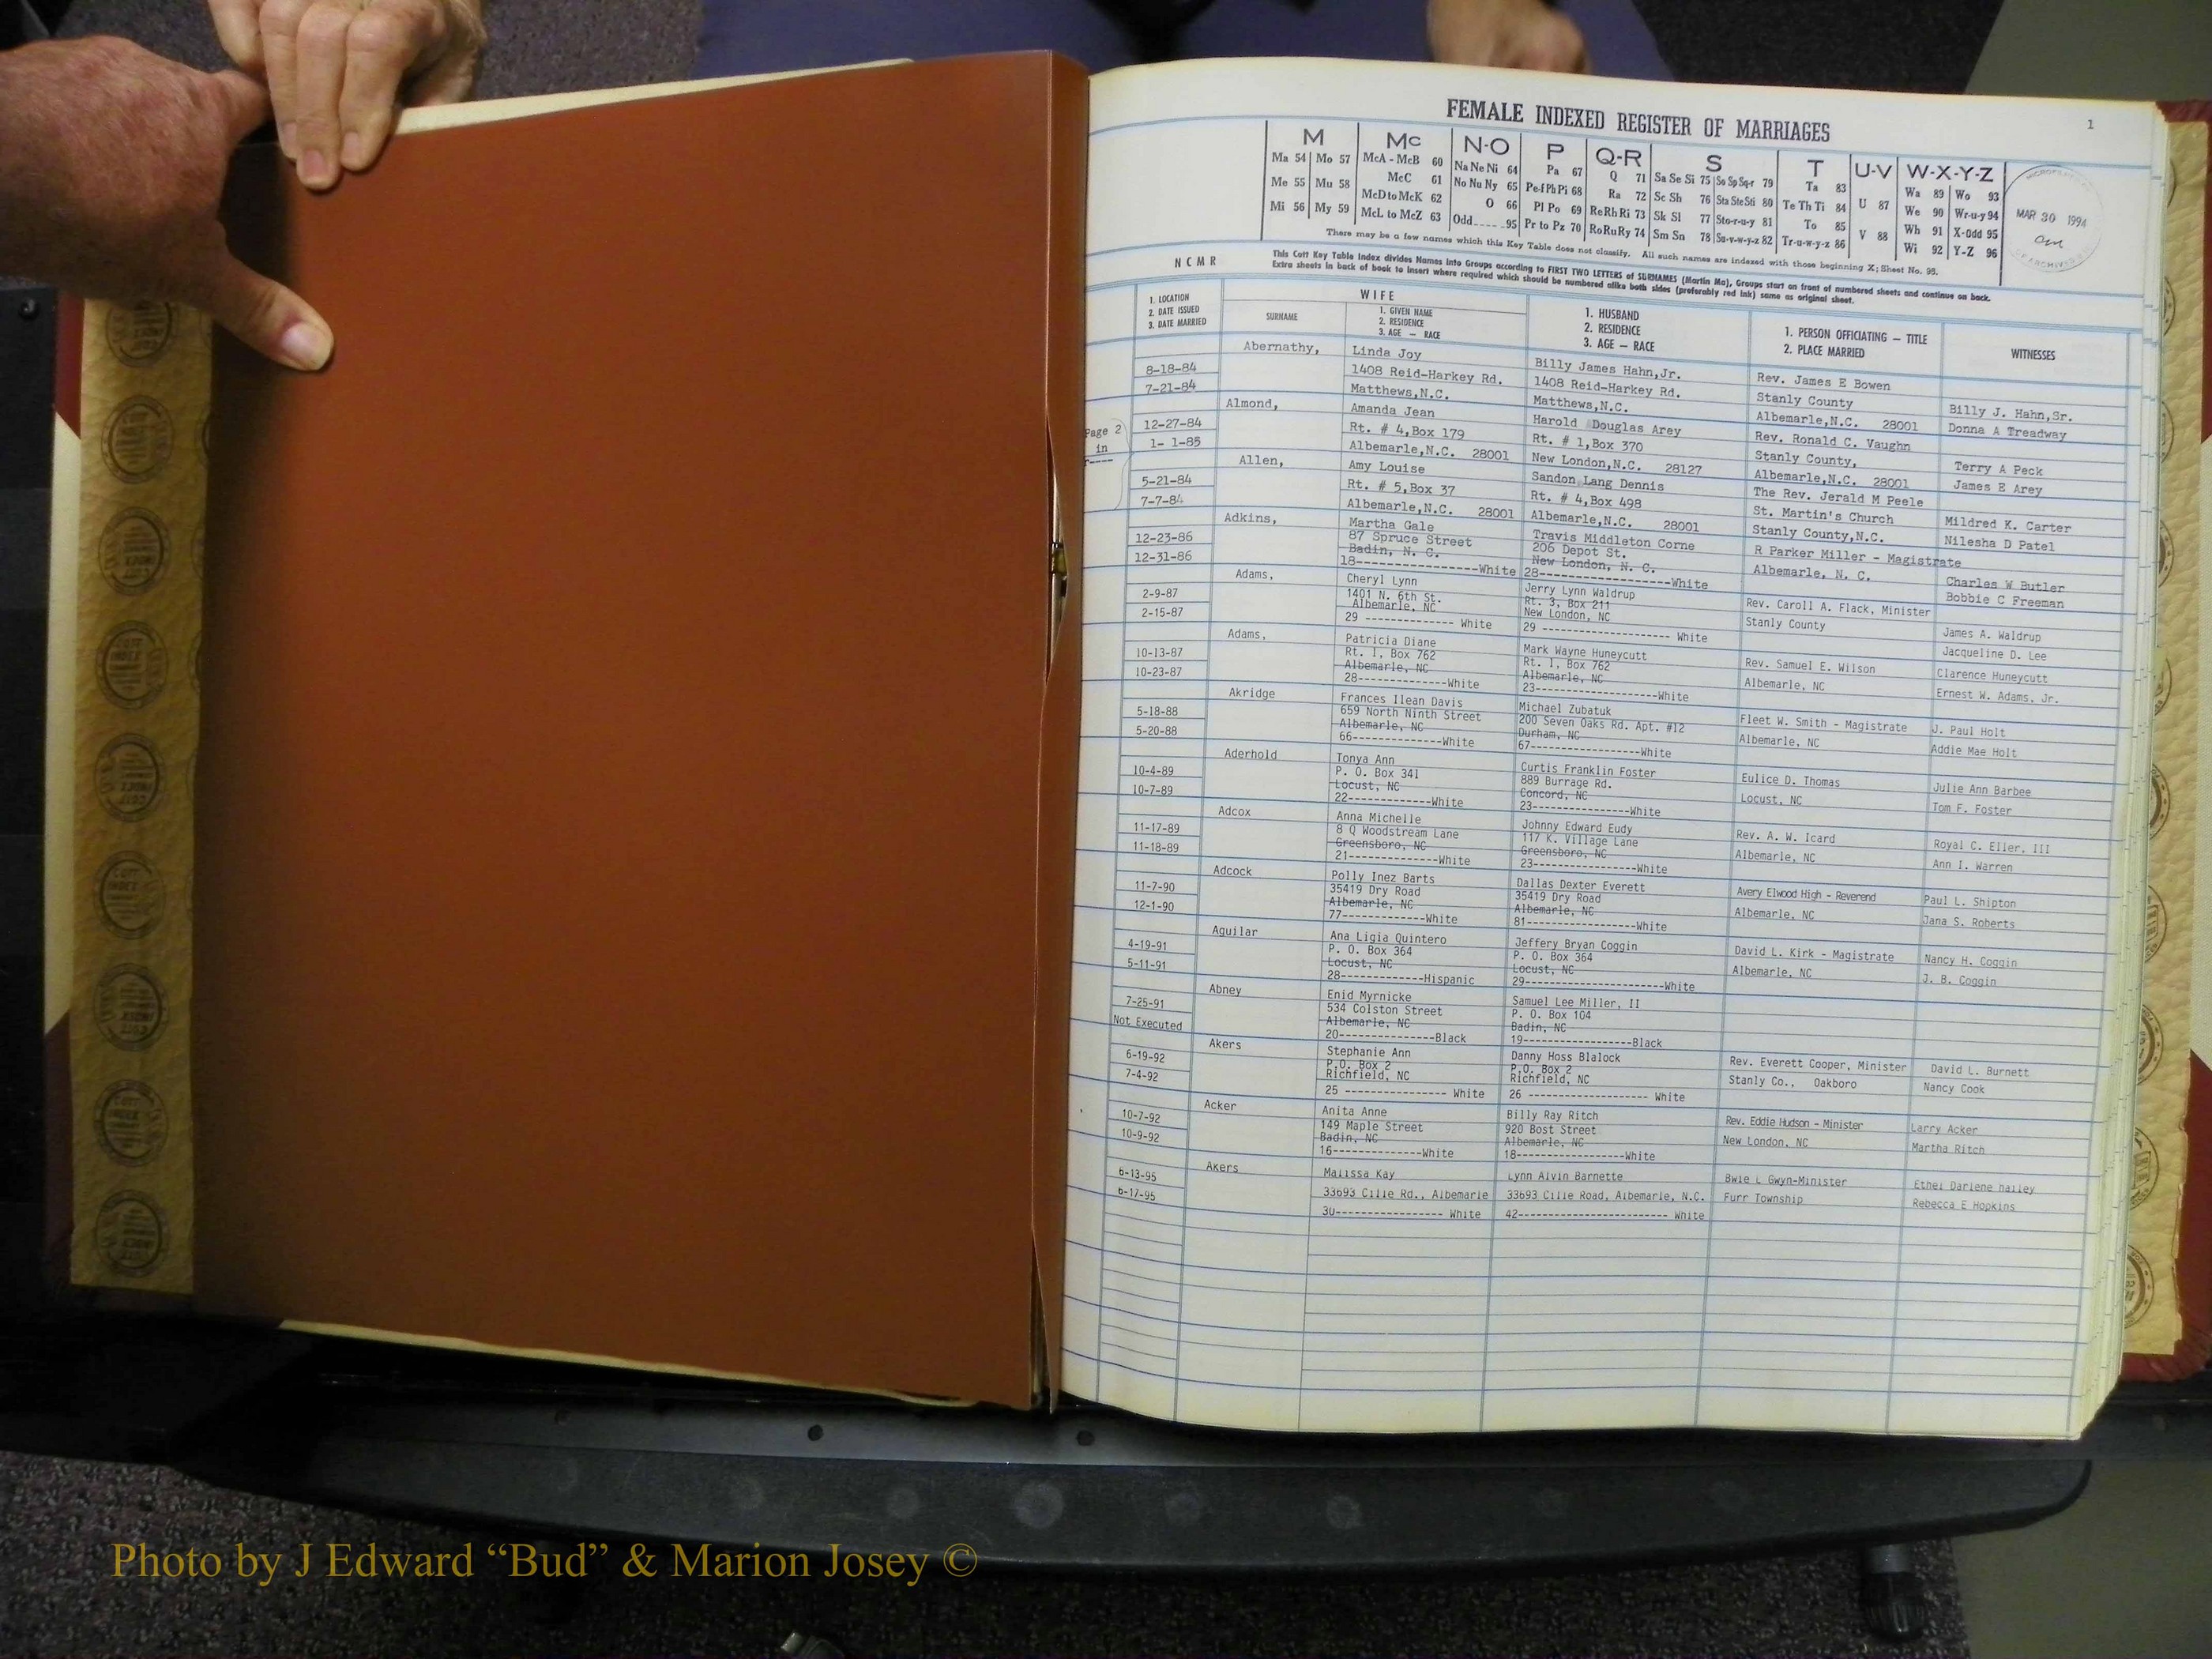 FEMALE INDEXED REGISTER OF MARRIAGES
1
M Mc N-O P Q-R S T U-V W-X-Y-Z
Ma 54 Mo 57 McA - McB 60 Na Ne Ni 64 Pa 67 Q 71 Sa Se Si 75 So Sp Sq-r 79 Ta 83 U 87 Wa 89 Wo 93
Me 55 Mu 58 McC 61 No Nu Ny 65 Pe-f Ph Pi 68 Ra 72 Sc Sh 76 Sta Ste Sti 80 Te Th Ti 84 V 88 We 90 Wr-u-y 94
Mi 56 My 59 McD to McK 62 O 66 Pl Po 69 Re Rh Ri 73 Sk Sl 77 Sto-r-u-y 81 To 85 Wh 91 X-Odd 95
McL to McZ 63 Odd 95 Pr to Pz 70 Ro Ru Ry 74 Sm Sn 78 Su-v-w-y-z 82 Tr-u-w-y-z 86 Wi 92 Y-Z 96
MAR 30 1994
There may be a few names which this Key Table does not classify. All such names are indexed with those beginning X; Sheet No. 95.
N C M R
This Cott Key Table Index divides Names into Groups according to FIRST TWO LETTERS of SURNAMES (Martin Ma), Groups start on front of numbered sheets and continue on back.
Extra sheets in back of book to insert where required which should be numbered alike both sides (preferably red ink) same as original sheet.
1. LOCATION
2. DATE ISSUED
3. DATE MARRIED
WIFE
SURNAME
1. GIVEN NAME
2. RESIDENCE
3. AGE — RACE
1. HUSBAND
2. RESIDENCE
3. AGE — RACE
1. PERSON OFFICIATING — TITLE
2. PLACE MARRIED
WITNESSES
Abernathy, Linda Joy Billy James Hahn,Jr. Rev. James E Bowen
8-18-84 1408 Reid-Harkey Rd. 1408 Reid-Harkey Rd. Stanly County Billy J. Hahn,Sr.
7-21-84 Matthews,N.C. Matthews,N.C. Albemarle,N.C. 28001 Donna A Treadway
Page 2
in
Almond, Amanda Jean Harold Douglas Arey Rev. Ronald C. Vaughn
12-27-84 Rt. # 4,Box 179 Rt. # 1,Box 370 Stanly County, Terry A Peck
1- 1-85 Albemarle,N.C. 28001 New London,N.C. 28127 Albemarle,N.C. 28001 James E Arey
Allen, Amy Louise Sandon Lang Dennis The Rev. Jerald M Peele
5-21-84 Rt. # 5,Box 37 Rt. # 4,Box 498 St. Martin's Church Mildred K. Carter
7-7-84 Albemarle,N.C. 28001 Albemarle,N.C. 28001 Stanly County,N.C. Nilesha D Patel
Adkins, Martha Gale Travis Middleton Corne R Parker Miller - Magistrate
12-23-86 87 Spruce Street 206 Depot St. Albemarle, N. C. Charles W Butler
12-31-86 Badin, N. C. New London, N. C. Bobbie C Freeman
18-----------------White 28------------------White
Adams, Cheryl Lynn Jerry Lynn Waldrup
2-9-87 1401 N. 6th St. Rt. 3, Box 211 Rev. Caroll A. Flack, Minister
2-15-87 Albemarle, NC New London, NC Stanly County James A. Waldrup
29 -------------- White 29 -------------------- White Jacqueline D. Lee
Adams, Patricia Diane Mark Wayne Huneycutt
10-13-87 Rt. 1, Box 762 Rt. 1, Box 762 Rev. Samuel E. Wilson Clarence Huneycutt
10-23-87 Albemarle, NC Albemarle, NC Albemarle, NC Ernest W. Adams, Jr.
28--------------White 23-------------------White
Akridge Frances Ilean Davis Michael Zubatuk
5-18-88 659 North Ninth Street 200 Seven Oaks Rd. Apt. #12 Fleet W. Smith - Magistrate J. Paul Holt
5-20-88 Albemarle, NC Durham, NC Albemarle, NC Addie Mae Holt
66--------------White 67-----------------White
Aderhold Tonya Ann Curtis Franklin Foster
10-4-89 P. O. Box 341 889 Burrage Rd. Eulice D. Thomas Julie Ann Barbee
10-7-89 Locust, NC Concord, NC Locust, NC Tom F. Foster
22-------------White 23-----------------White
Adcox Anna Michelle Johnny Edward Eudy
11-17-89 8 Q Woodstream Lane 117 K. Village Lane Rev. A. W. Icard Royal C. Eller, III
11-18-89 Greensboro, NC Greensboro, NC Albemarle, NC Ann I. Warren
21--------------White 23-----------------White
Adcock Polly Inez Barts Dallas Dexter Everett
11-7-90 35419 Dry Road 35419 Dry Road Avery Elwood High - Reverend Paul L. Shipton
12-1-90 Albemarle, NC Albemarle, NC Albemarle, NC Jana S. Roberts
77-------------White 81-----------------White
Aguilar Ana Ligia Quintero Jeffery Bryan Coggin
4-19-91 P. O. Box 364 P. O. Box 364 David L. Kirk - Magistrate Nancy H. Coggin
5-11-91 Locust, NC Locust, NC Albemarle, NC J. B. Coggin
28-------------Hispanic 29----------------------White
Abney Enid Myrnicke Samuel Lee Miller, II
7-25-91 534 Colston Street P. O. Box 104
Not Executed Albemarle, NC Badin, NC
20--------------Black 19-----------------Black
Akers Stephanie Ann Danny Hoss Blalock
6-19-92 P.O. Box 2 P.O. Box 2 Rev. Everett Cooper, Minister David L. Burnett
7-4-92 Richfield, NC Richfield, NC Stanly Co., Oakboro Nancy Cook
25 ---------------- White 26 ------------------- White
Acker Anita Anne Billy Ray Ritch
10-7-92 149 Maple Street 920 Bost Street Rev. Eddie Hudson - Minister Larry Acker
10-9-92 Badin, NC Albemarle, NC New London, NC Martha Ritch
16--------------White 18------------------White
Akers Malissa Kay Lynn Alvin Barnette
6-13-95 33693 Cille Rd., Albemarle 33693 Cille Road, Albemarle, N.C. Gwyn-Minister Ethel Darlene
6-17-95 Furr Township Rebecca E Hopkins
30----------------- White 42------------------------ White
Photo by J Edward “Bud” & Marion Josey ©